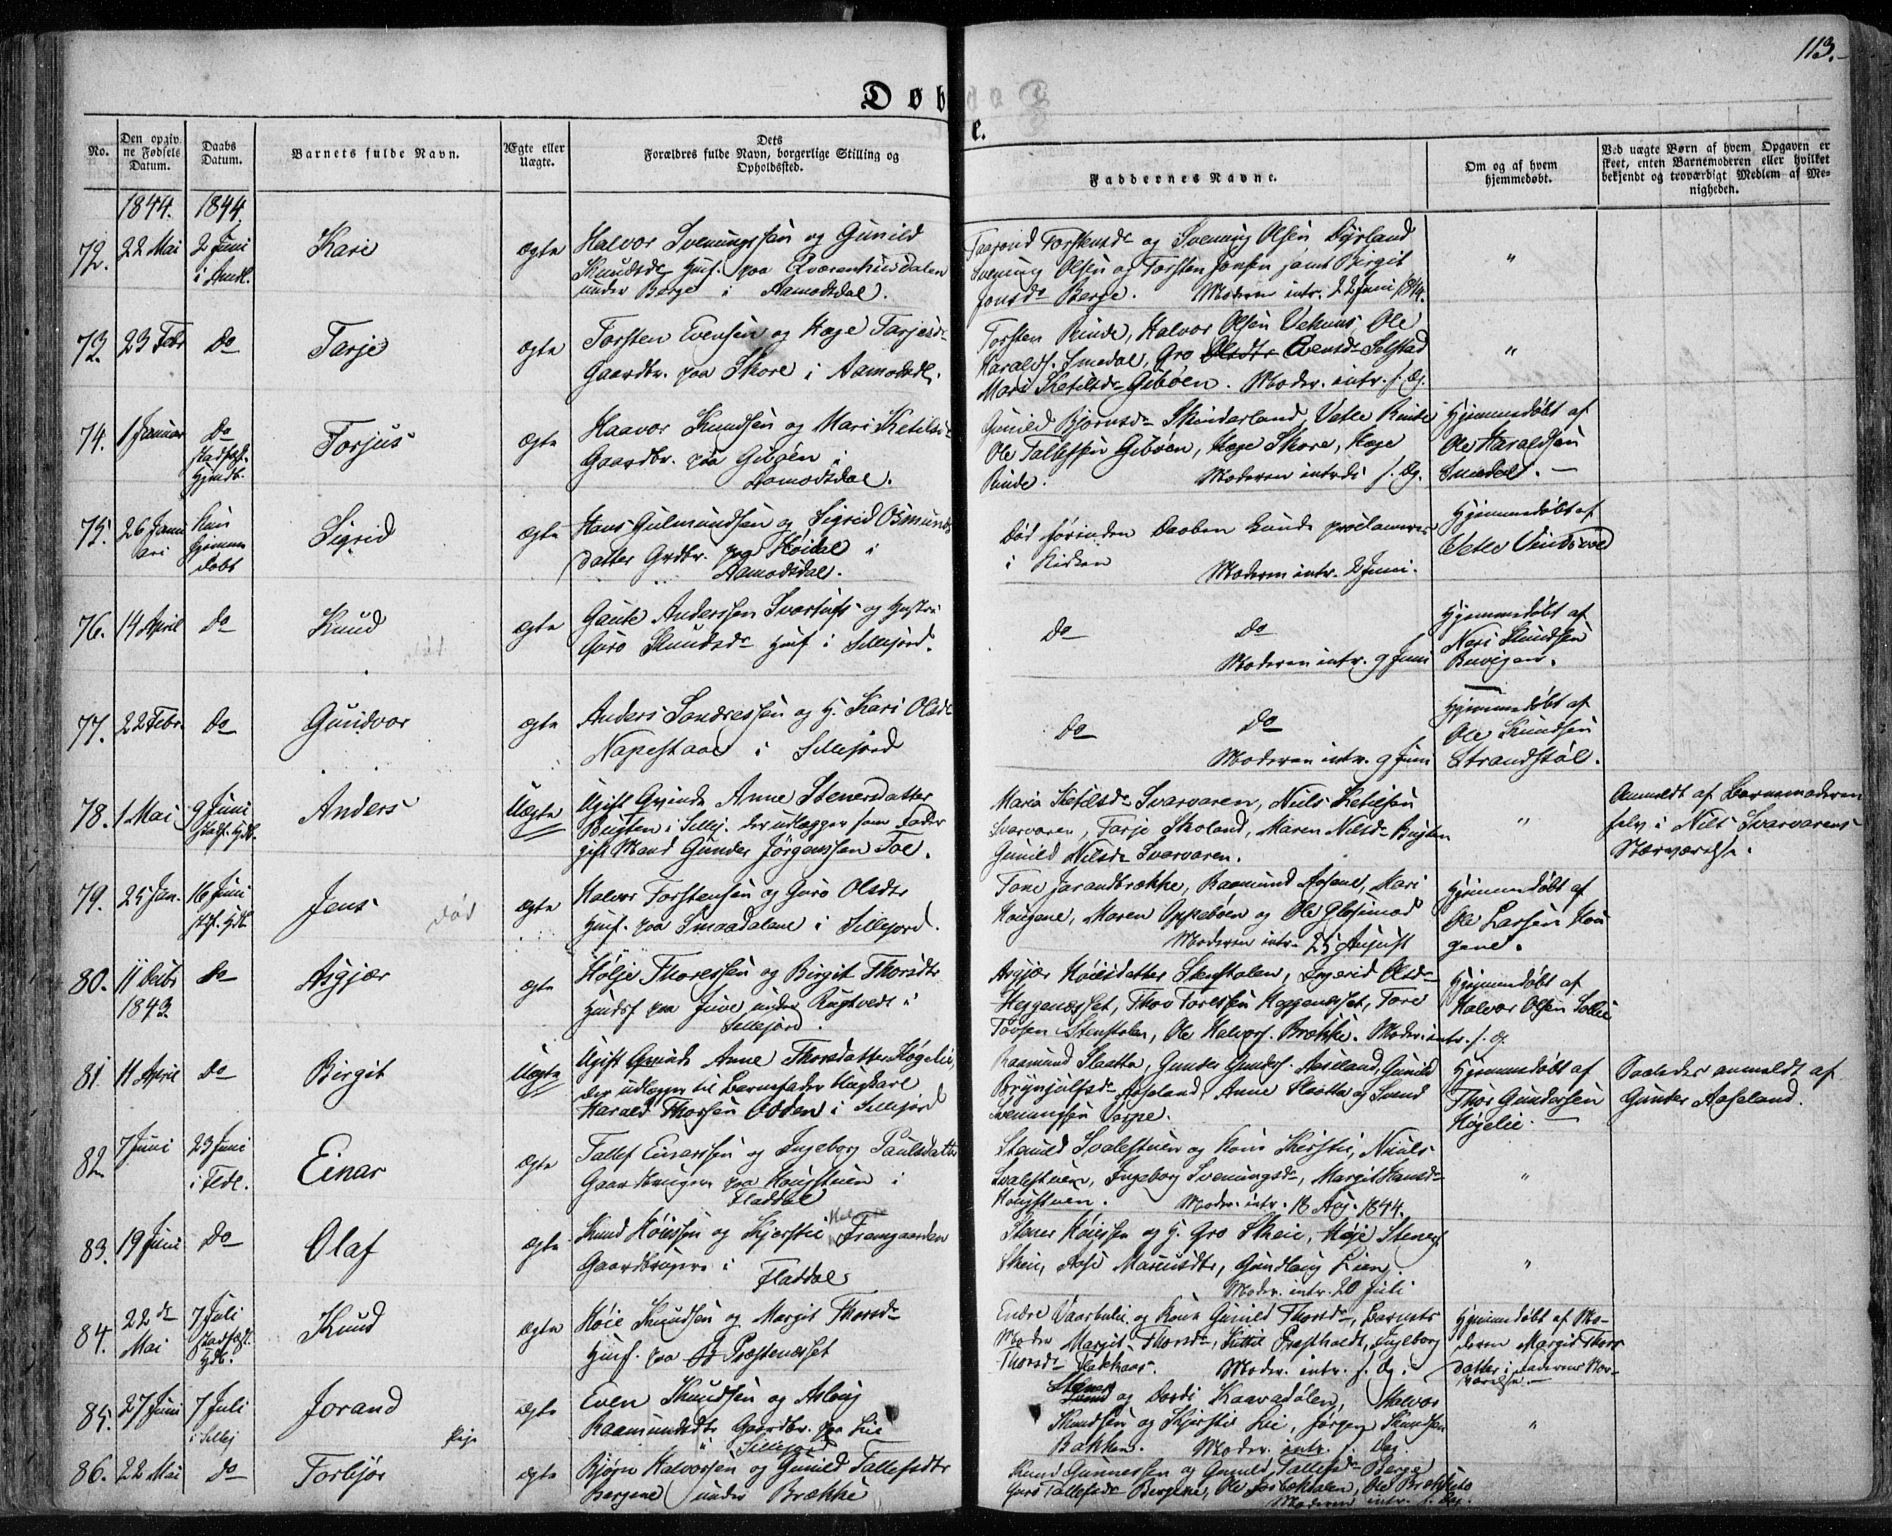 113.
Døbte.
No.
Den opgivne Fødsels Datum.
Daabs Datum.
Barnets fulde Navn.
Ægte eller Uægte.
Dets Forældres fulde Navn, borgerlige Stilling og Opholdssted.
Faddernes Navne.
Om og af hvem hjemmedøbt.
Ved uægte Børn af hvem Opgaven er skeet, enten Barnemoderen eller hvilket bekjendt og troværdigt Medlem af Menigheden.
1844. 1844.
72. 22 Mai 2 Juni Kari ægte Halvor Svenungssen og Gunild
Knudsdr Husf. paa
under Berge i Aamodsdal.
Torstensdr og Svenung Olsen Dyrland
Svenung Olsen og Torsten Jonsen samt Birgit
Jonsdr Berge. Moderen intr. 22 Juni 1844. "
73. 23 Febr Do Tarje ægte Torsten Evensen og Hæge Tarjesdr
Gaardbr. paa Skore i Aamodsdl.
Torsten Rinde, Halvor Olsen Vehuus, Ole
Haralds. Smedal, Gro Evensdr Selstad
Mari Ketilsdr Gibøen. Moder. intr. s. Dg. "
74. 1 Januar Do stadfæst. Hjmdb. Torjus ægte Haavor Knudsen og Mari Ketilsdr
Gaardbr. paa Gibøen i
Aamodsdal.
Gunild Bjørnsdr Skindarland, Vetle Rinde
Ole Tallefsen Gibøen, Hæge Skore, Hæge
Rinde. Moderen introd: s. Dg.
Hjemmedøbt af
Ole Haraldsen
Smedal.
75. 26 Januari kun hjemmedøbt Sigrid ægte Hans Gulmundsen og Sigrid Osmundsdatter Grdbr. paa Høidal i
Aamodsdal.
Død forinden Daaben kunde proclameres
i Kirken Moderen intr. 2 Juni.
Hjemmedøbt af
Vetle
76. 14 April Do Knud ægte Gaute Anderssen og Hustru
Guro Knudsdr Husf i Sillejord.
Do Do
Moderen intr. 9 Juni
Hjemmedøbt af
Knudsen
77. 22 Febr. Do Gundvor ægte Anders Sondressen og H. Kari Olsdr
Napestaae i Sillejord
Do Do
Moderen intr. 9 Juni
Hjemmedøbt af
Ole Knudsen
Strandstøl.
78. 1 Mai 9 Juni stadf. Hjdb. Anders Uægte Ugift Qvinde Anne Stenersdatter
Bugten i Sillej. der udlægger som Fader
gift Mand Gunder Jørgenssen Toe.
Maria Ketilsdr Svarvaren, Niels Ketilsen
Svarvaren, Tarje Skoland, Maren Nilsdr Bugten
Gunild Nilsdr Svarvaren. "
Anmeldt af Barnemoderen
selv i Nils Svarvarens
Nærværelse.
79. 25 Jan. 16 Juni stf. Hjdb. Jens død ægte Halvor Torstensen og Guro Olsdtr
Husf. paa Smaadalene i Sillejord.
Tone Jarandbrække, Raamund Aasene, Mari
Haugene, Maren Oppebøen og Ole Glosimod
Moderen intr. 25 August
Hjemmedøbt af
Ole Larsen Haugene.
80. 11 Decbr 1843 Do Asgjær ægte Hølje Thoressen og Birgit Thorsdtr
Husf paa under Rugtvedt i
Sillejord.
Asgjær Høiesdatter Stenstolen, Olsdr
Heggenæsset, Thov Toressen Heggenæsset, Tore
Tovsen Stenstolen, Ole Halvors. Brække. Moder. intr. s. Dg
Hjemmedøbt af
Halvor Olsen
81. 11 April Do Birgit Uægte Ugift Qvinde Anne Thorsdatter Høgelie,
der udlægger til Barnefader Ungkarl
Harald Thorsen i Sillejord
Raamund Slaatta, Gunder Gunders. Aaseland, Gunild
Brynjulfsdr Aaseland, Anne Slaatta og Svend
Svenungsen
Hjemmedøbt af
Thor Gundersen
Høgelie.
Saaledes anmeldt af
Gunder Aaseland.
82 7 Juni 23 Juni i Fldl. Einar ægte Tallef Einarssen og Ingeborg Paulsdatter
Gaardbruger paa Haugstuen i
Fladdal
Svalestuen og Kone Kirstie, Niels
Svalestuen, Ingeborg Svenungsdr, Margit Hansdr
Haugstuen. Moder. intr. 18 Aug. 1844. "
83. 19 Juni Do Olaf ægte Knud Høiessen og Kjerstie Framgaarden
Gaardbrugere i Fladdal
Stener Høiessen og H. Gro Skeie, Høje Steners.
Skeie, Aase Mariusdtr, Gundlaug Lien.
Moder. intr. 20 Juli "
84. 22de Mai 7 Juli stadfæst. Hjdb. Knud ægte Høie Knudsen og Margit Thorsdr
Husf. paa Præstenæsset
Endre og Kone Gunild Thorsdr, Barnets
Moder Margit Thorsdr, Kittil Ingeborg
Thorsdr Flekhaar. Moder. intr. s. Dg.
Hjemmedøbt af Moderen Margit Thorsdatter i Faderens Nærværelse.
85. 27 Juni 7 Juli i Sillej Jorand Pige ægte Even Knudsen og Aslaug
Raamundsdtr Gaardbr. paa Lie
i Sillejord
Stener og Dordi Kaavadølen, Halvor
Knudsen og Kjerstie Lie, Jørgen Knudsen
Bakken. Moder. intr. s. Dag. "
86. 22 Mai Do Torbjør ægte Bjørn Halvorsen og Gunild Tallefsdtr
Bergene under Brække
Knud Gunnersen og Gunild Tallefsdr Berge
Guro Tallefsdr Bergene, Ole
Moderen intr. s. Dag.